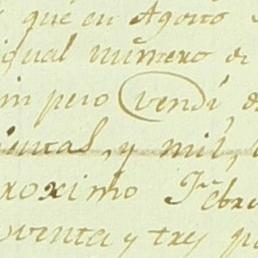 que en Agosto
igual número de
in pero vendí, d
intas, y mil,
roximo Febre
oventa y tres p